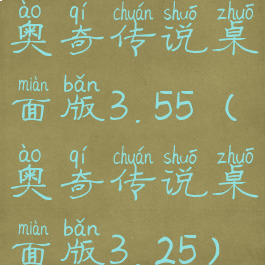 ào qí chuán shuō zhuō
奥奇传说桌
miàn bǎn
面版3.55(
ào qí chuán shuō zhuō
奥奇传说桌
miàn bǎn
面版3.25)